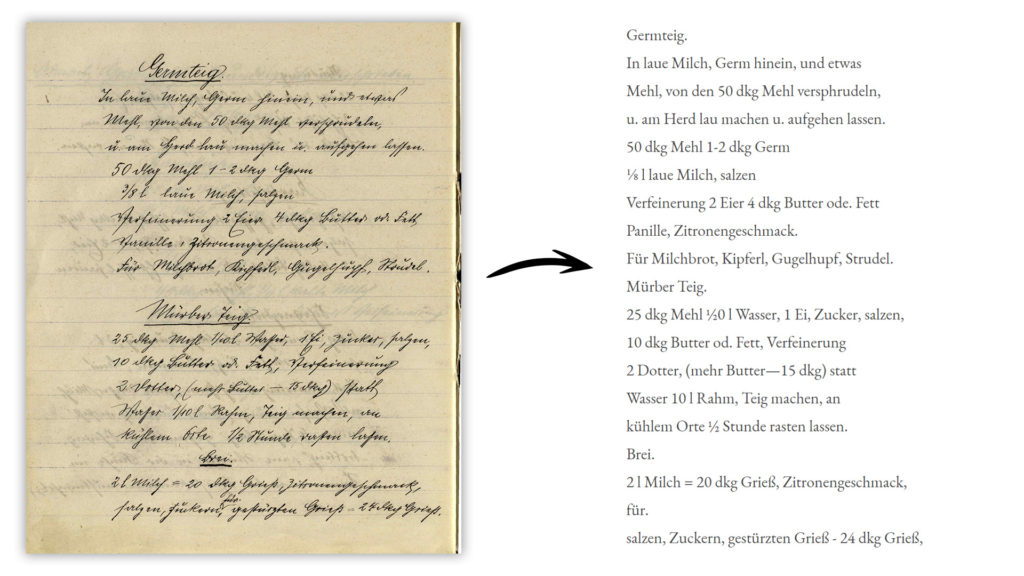 Germteig.
In laue Milch, Germ hinein, und etwas
Mehl, von den 50 dkg Mehl versprudeln,
u. am Herd lau machen u. aufgehen lassen.
50 dkg Mehl 1-2 dkg Germ
3/8 l laue Milch, salzen
Verfeinerung 2 Eier 4 dkg Butter od. Fett
Vanille, Zitronengeschmack.
Für Milchbrot, Kipferl, Gugelhupf, Strudel.
Mürber Teig.
25 dkg Mehl 1/10 l Wasser, 1 Ei, Zucker, salzen,
10 dkg Butter od. Fett, Verfeinerung
2 Dotter, (mehr Butter — 15 dkg) statt
Wasser 1/10 l Rahm, Teig machen, an
kühlem Orte 1/2 Stunde rasten lassen.
Brei.
2 l Milch = 20 dkg Grieß, Zitronengeschmack,
für
salzen, zuckern, gestürzten Grieß - 24 dkg Grieß.
Germteig.
In laue Milch, Germ hinein, und etwas
Mehl, von den 50 dkg Mehl versphrudeln,
u. am Herd lau machen u. aufgehen lassen.
50 dkg Mehl 1-2 dkg Germ
⅛ l laue Milch, salzen
Verfeinerung 2 Eier 4 dkg Butter ode. Fett
Panille, Zitronengeschmack.
Für Milchbrot, Kipferl, Gugelhupf, Strudel.
Mürber Teig.
25 dkg Mehl ½0 l Wasser, 1 Ei, Zucker, salzen,
10 dkg Butter od. Fett, Verfeinerung
2 Dotter, (mehr Butter—15 dkg) statt
Wasser 10 l Rahm, Teig machen, an
kühlem Orte ½ Stunde rasten lassen.
Brei.
2 l Milch = 20 dkg Grieß, Zitronengeschmack,
für.
salzen, Zuckern, gestürzten Grieß - 24 dkg Grieß,